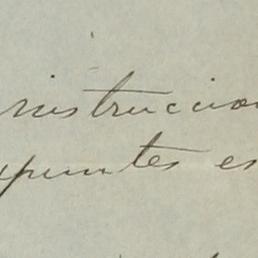 instruccion
apuntes es